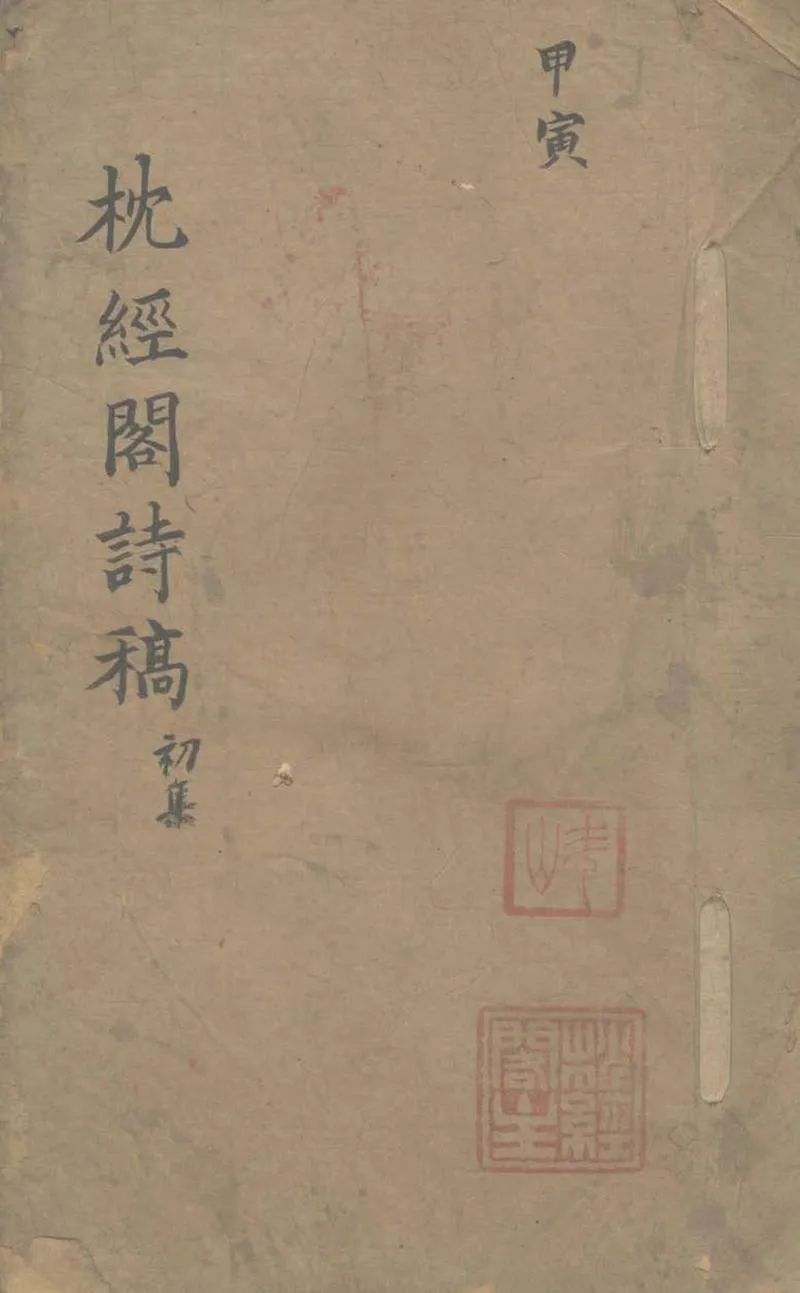 甲寅
枕經閣詩稿
初集
枕經閣主